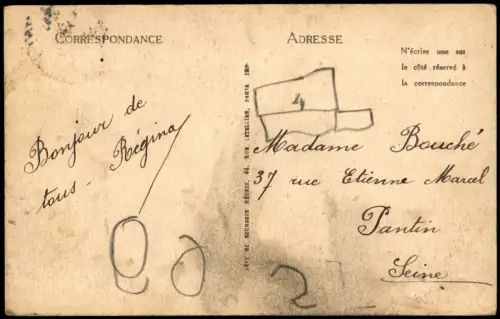 CORRESPONDANCE
ADRESSE
N'écrire que sur
le côté réservé à
la correspondance
Bonjour de
tous - Régina
Madame Bouché
37 rue Etienne Marcel
Pantin
Seine